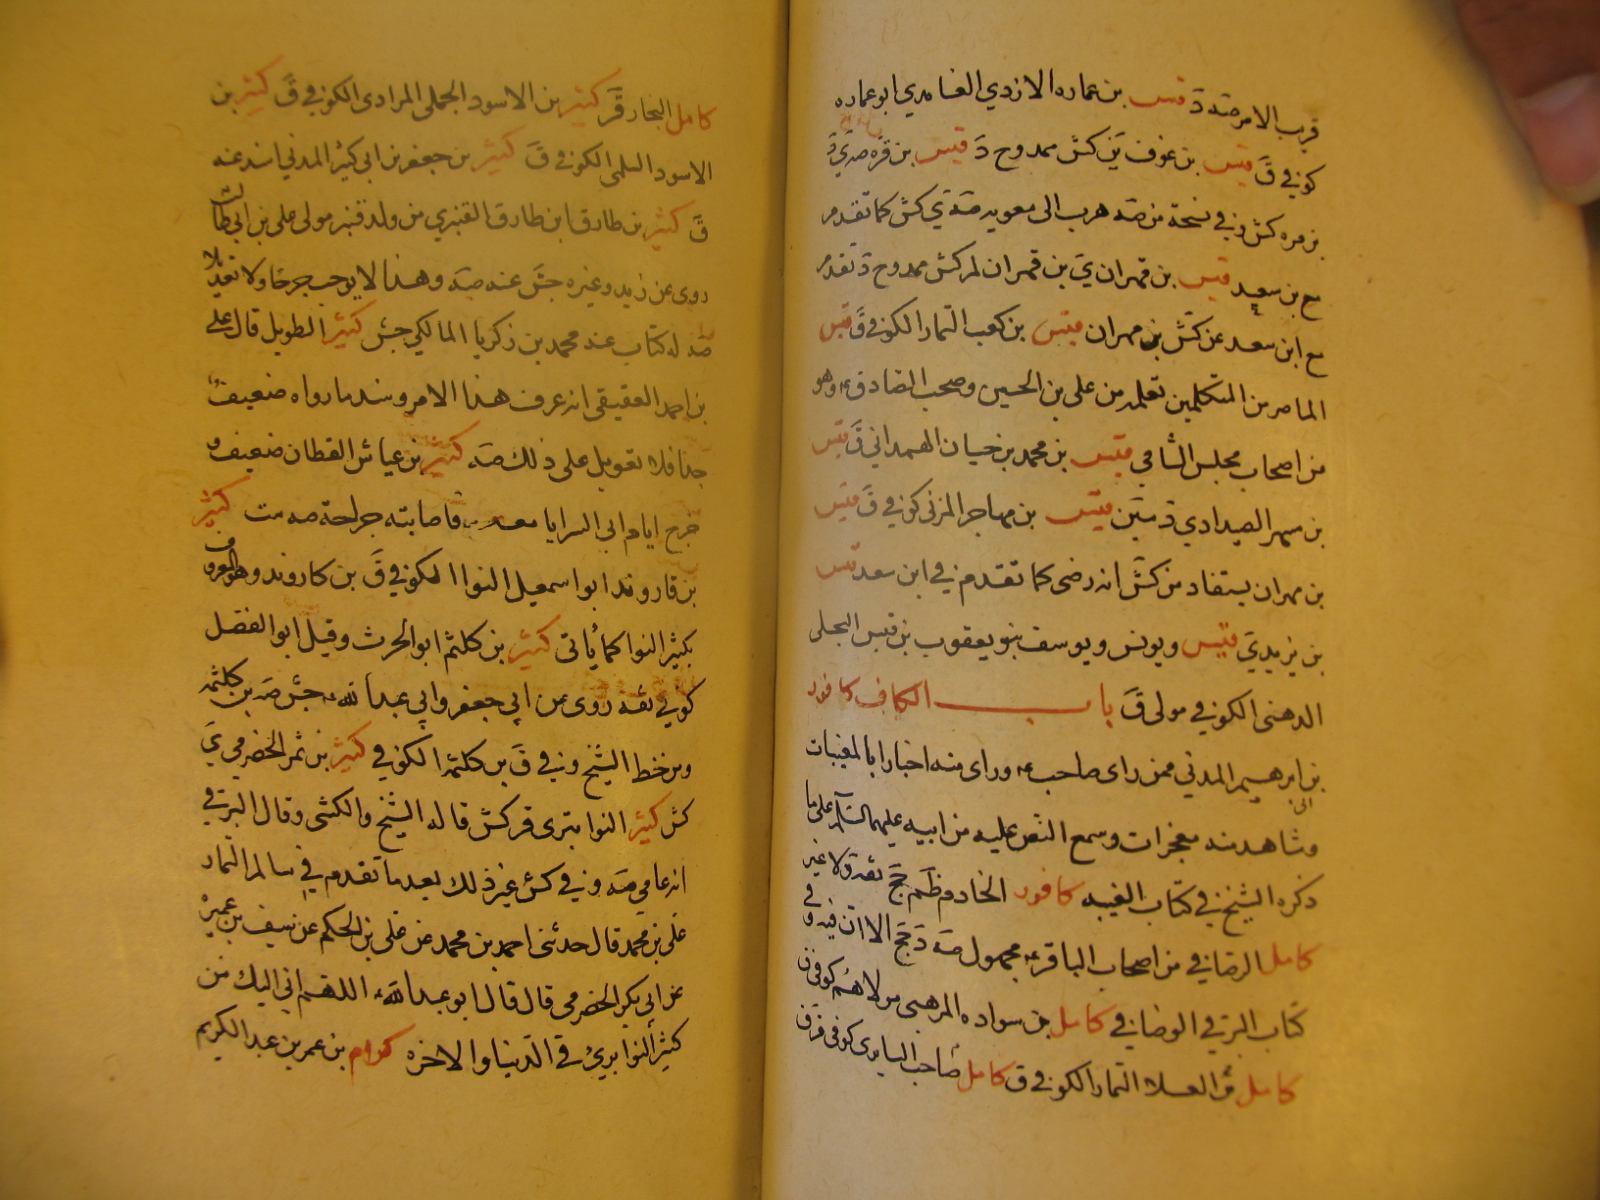 قريب الامر صه دَ قيس بن عماره الازدي الغامدي ابو عماره
كوفي قَ قيس بن عوف ين كش ممدوح دَ قيس بن قره صه ي دَ
بن مره كش وفي نسخة من صه هرب الى معويه صه ي كش كما تقدم
مع بن سعيد قيس بن قهران يَ بن قهران لم كش ممدوح دَ تقدم
مع ابن سعد عن كش بن مهران قيس بن كعب التمار الكوفي قَ قيس
الماصر من المتكلمين تعلمه من علي بن الحسين وصحب الصادق ع وهو
من اصحاب مجلس الشامي قيس بن محمد بن حيان الهمداني قَ قيس
بن مسهر الصيداوي دَ سين قيس بن مهاجر المزني كوفي قَ قيس
بن مهران يستفاد من كش انه رضى كما تقدم في ابن سعد قيس
بن يزيد يَ قيس ويونس ويوسف بنو يعقوب بن قيس البجلي
الدهني الكوفي مولى قَ باب الكاف كافور
بن ابرهيم المدني ممن راى صاحب ع وراى منه اخبارا بالمغيبات
وشاهد منه معجزات وسمع النص عليه من ابيه عليهما السلام على ما
ذكره الشيخ في كتاب الغيبه كافور الخادم ظم جخ ثقة ولا غير
كامل الرصافي من اصحاب الباقر ع مجهول صه دَ جخ الا ان فيه وفي
كتاب البرقي الوصافي كامل بن سواده المرهبي مولاهم كوفي ق
كامل بن العلاء التمار الكوفي ق كامل صاحب السابري كوفي قر ق
كامل النجار قَر كثير بن الاسود الجملي المرادي الكوفي قَ كثير بن
الاسود السلمي الكوفي قَ كثير بن جعفر بن ابي كثير المدني اسند عنه
قَ كثير بن طارق ابن طارق القنبري من ولد قنبر مولى علي بن ابي طالب
روى عن زيد وغيره جش عنه صه وهذا لا يوجب جرحا ولا تعديلا
صه له كتاب عنه محمد بن زكريا المالكي جش كثير الطويل قال علي
بن احمد العقيقي انه عرف هذا الامر وسند ما رواه ضعيف
جدا فلا تعويل على ذلك صه كثير بن عياش القطان ضعيف و
خرج ايام ابي السرايا معه فاصابته جراحة صه ست كثير
بن قاروندا ابو اسمعيل النوا الكوفي قَ بن كاروند وهو المعروف
بكثير النوا كما ياتي كثير بن كلثم ابو الحرث وقيل ابو الفضل
كوفي ثقه روى عن ابي جعفر وابي عبد الله ع جش صه بن كلثمه
ومن خط الشيخ وفي قَ بن كلثم الكوفي كثير بن نمر الحضرمي يَ
كش كثير النوا بتري قر كش قاله الشيخ والكشي وقال البرقي
انه عامي صه وفي كش غير ذلك بعد ما تقدم في سالم التمار
علي بن محمد قال حدثني احمد بن محمد عن علي بن الحكم عن سيف بن عميرة
عن ابي بكر الحضرمي قال قال ابو عبد الله ع اللهم اني اليك من
كثير النوا برئ في الدنيا والاخره كرام بن عمر بن عبد الكريم